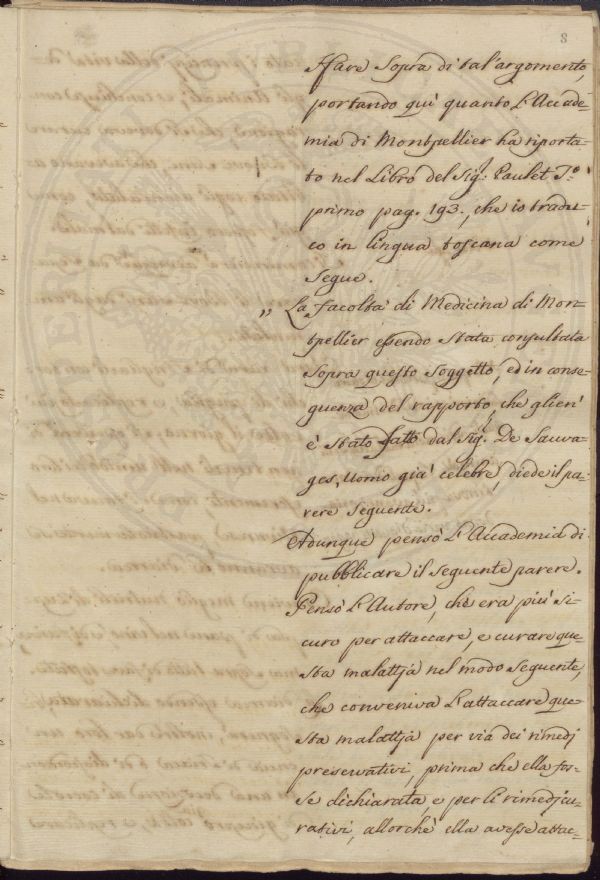 8
ffare Sopra di tal'argomento,
portando quì quanto L'Accade-
mia di Montpellier ha riporta-
to nel Libro del Sig.r Paulet T.o
primo pag. 193., che io tradu-
co in lingua toscana come
segue.
„ La facoltà di Medicina di Mon-
tpellier essendo stata consultata
sopra questo soggetto, ed in conse-
guenza del rapporto, che glien'
è stato fatto dal Sig.r De Sauva-
ges, Uomo già celebre, diede il pa-
rere seguente.
Adunque pensò L'Accademia di
pubblicare il seguente parere.
Pensò L'Autore, che era più si-
curo per attaccare, e curare que-
sta malattia nel modo seguente,
che conveniva L'attaccare que-
sta malattia per via dei rimedj
preservativi, prima che ella fos-
se dichiarata, e per li rimedj cu-
rativi, allorchè ella avesse attac-